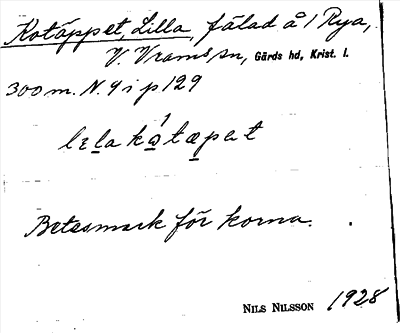 Kotäppet, Lilla, fälad å 1 Rya,
V. Vrams sn, Gärds hd, Krist. l.
300 m. N. 4 i p 129
Betesmark för korna.
NILS NILSSON 1928